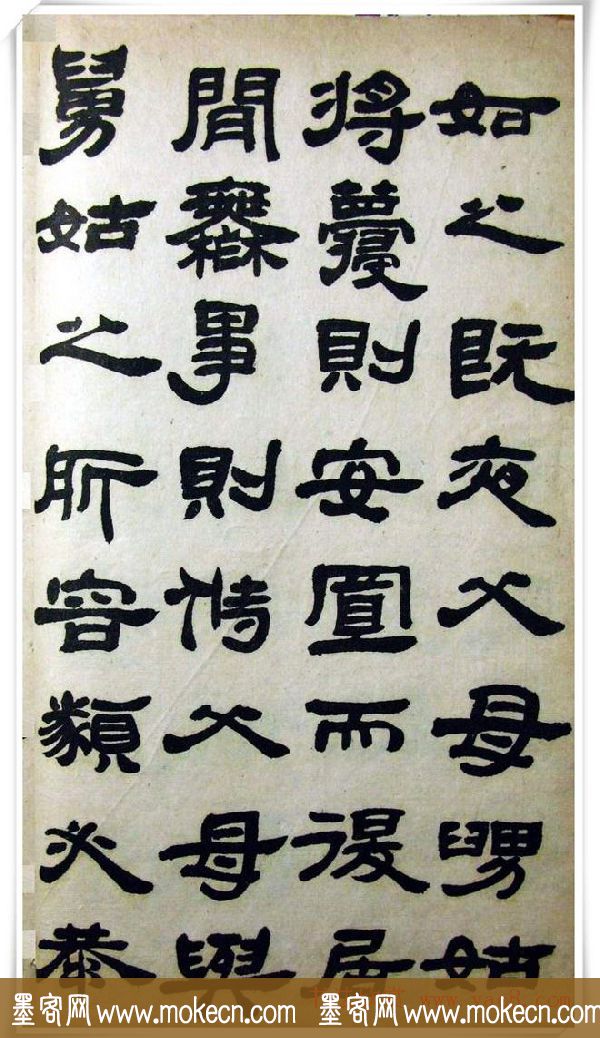 如之既夜父母舅姑
將寢則安置而退居
閒無事則侍父母與
舅姑之所容貌必恭
墨客网 www.mokecn.com 墨客网 www.mokecn.com